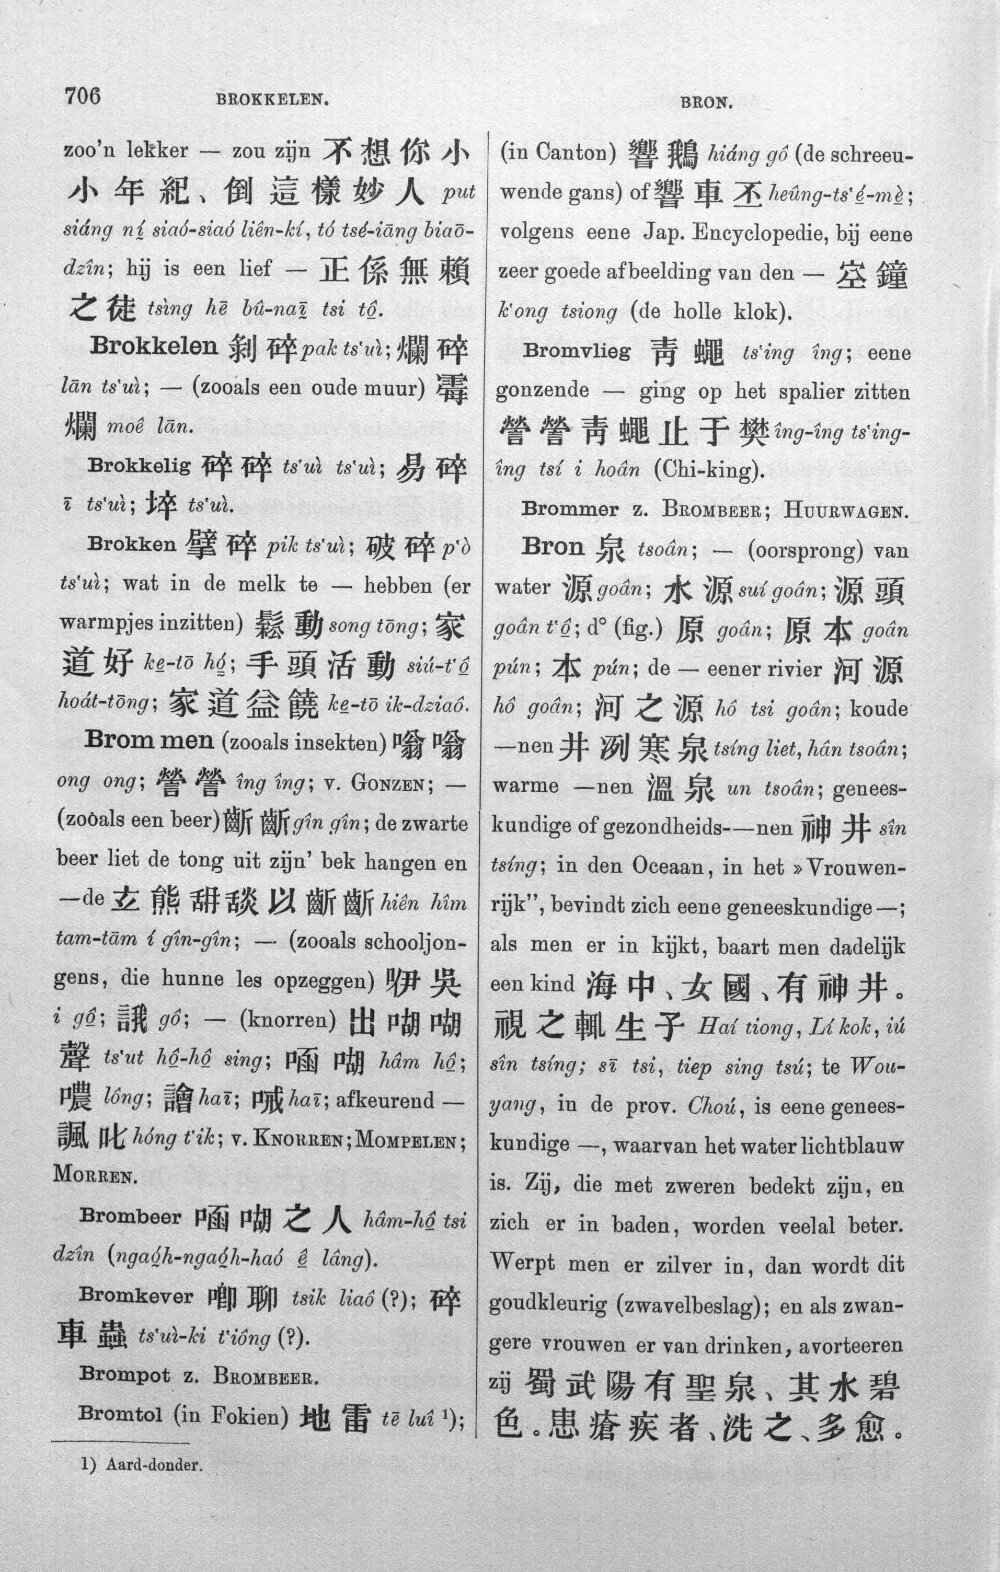 706
BROKKELEN.
BRON.
zoo'n lekker — zou zijn 不想你小
小年紀、倒這樣妙人 put
siáng ní̱ siaó-siaó liên-kí, tó tsé-iāng biaō-
dzîn; hij is een lief — 正係無賴
之徒 tsìng hē bû-naī̱ tsi tô̱.
Brokkelen 剝碎 pak ts‘uì; 爛碎
lān ts‘uì; — (zooals een oude muur) 霉
爛 moê lān.
Brokkelig 碎碎 ts‘uì ts‘uì; 易碎
ī ts‘uì; 埣 ts‘uì.
Brokken 擘碎 pik ts‘uì; 破碎 p‘ò
ts‘uì; wat in de melk te — hebben (er
warmpjes inzitten) 鬆動 song tōng; 家
道好 ke̱-tō hó̱; 手頭活動 siú-t‘ô̱
hoát-tōng; 家道益饒 ke̱-tō ik-dziaô.
Brommen (zooals insekten) 嗡嗡
ong ong; 營營 îng îng; v. GONZEN; —
(zooals een beer) 齗齗 gîn gîn; de zwarte
beer liet de tong uit zijn’ bek hangen en
—de 玄熊𦧲𦧡以齗齗 hiên hîm
tam-tām í gîn-gîn; — (zooals schooljon-
gens, die hunne les opzeggen) 咿吳
i gô̱; 誐 gô; — (knorren) 出㗅㗅
聲 ts‘ut hô̱-hô̱ sing; 㖤㗅 hâm hô̱;
噥 lông; 譮 haī; 㖑 haī; afkeurend —
諷叱 hóng t‘ik; v. KNORREN; MOMPELEN;
MORREN.
Brombeer 㖤㗅之人 hâm-hô̱ tsi
dzîn (ngaó̱h-ngaó̱h-haó ê̱ lâng).
Bromkever 喞聊 tsik liaô (?); 碎
車蟲 ts‘uì-ki t‘iông (?).
Brompot z. BROMBEER.
Bromtol (in Fokien) 地雷 tē luî ¹);
1) Aard-donder.
(in Canton) 響鵝 hiáng gô (de schreeu-
wende gans) of 響車丕 heûng-ts‘é̱-mè̱;
volgens eene Jap. Encyclopedie, bij eene
zeer goede afbeelding van den — 空鐘
k‘ong tsiong (de holle klok).
Bromvlieg 靑蠅 ts‘ing îng; eene
gonzende — ging op het spalier zitten
營營靑蠅止于樊 îng-îng ts‘ing-
îng tsí i hoân (Chi-king).
Brommer z. BROMBEER; HUURWAGEN.
Bron 泉 tsoân; — (oorsprong) van
water 源 goân; 水源 suí goân; 源頭
goân t‘ô̱; d° (fig.) 原 goân; 原本 goân
pún; 本 pún; de — eener rivier 河源
hô goân; 河之源 hô tsi goân; koude
—nen 井洌寒泉 tsíng liet, hân tsoân;
warme —nen 溫泉 un tsoân; genees-
kundige of gezondheids-—nen 神井 sîn
tsíng; in den Oceaan, in het »Vrouwen-
rijk”, bevindt zich eene geneeskundige —;
als men er in kijkt, baart men dadelijk
een kind 海中、女國、有神井。
視之輒生子 Haí tiong, Lí kok, iú
sîn tsíng; sī tsi, tiep sing tsú; te Wou-
yang, in de prov. Choú, is eene genees-
kundige —, waarvan het water lichtblauw
is. Zij, die met zweren bedekt zijn, en
zich er in baden, worden veelal beter.
Werpt men er zilver in, dan wordt dit
goudkleurig (zwavelbeslag); en als zwan-
gere vrouwen er van drinken, avorteeren
zij 蜀武陽有聖泉、其水碧
色。患瘡疾者、洗之、多愈。